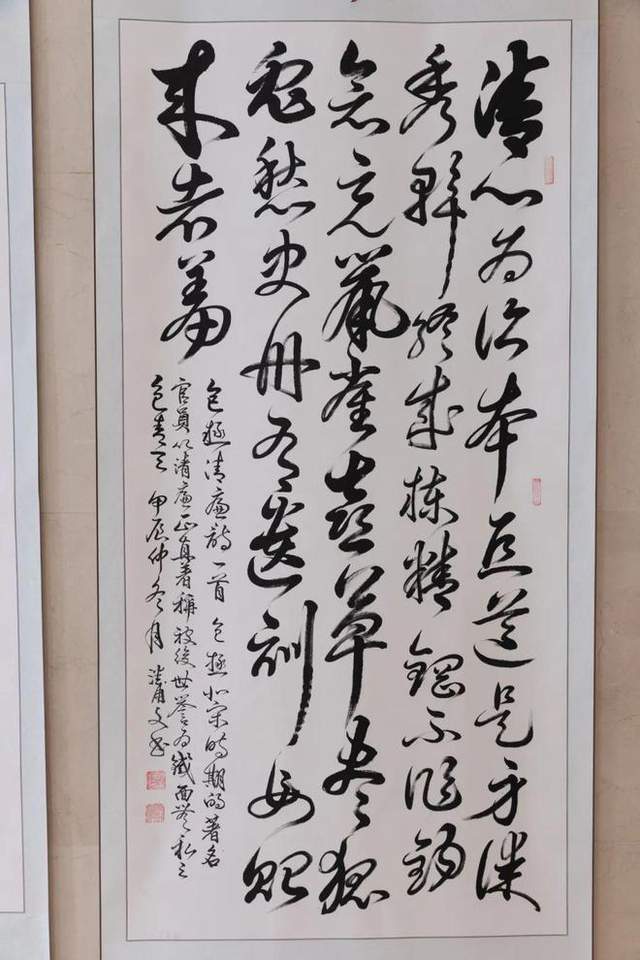 清心为治本直道是身谋
秀幹終成棟精鋼不作鉤
倉充鼠雀喜草尽狐
兔愁史册有遺訓毋貽
来者羞
包拯清廉詩一首 包拯北宋時期的著名
官員以清廉正直著稱被後世誉为鐵面無私之
包青天 甲辰仲冬月